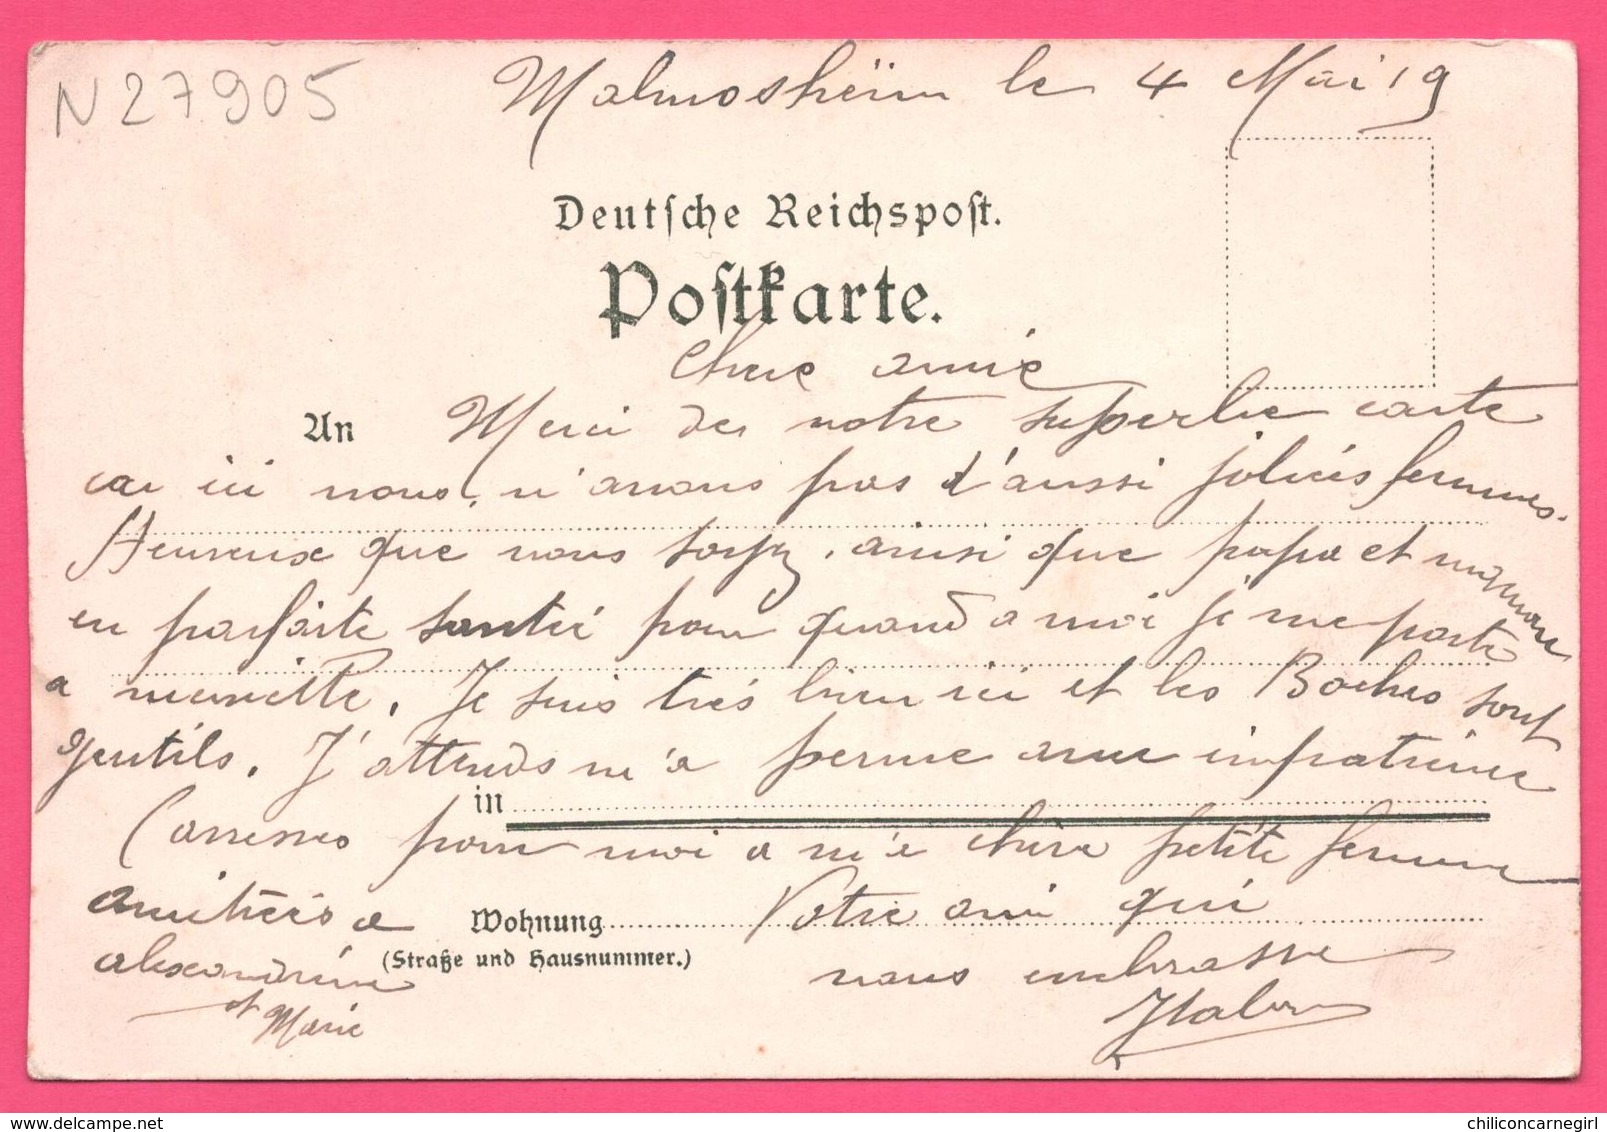 N 27905
Malmosheïm le 4 Mai 19
Deutsche Reichspost.
Postkarte.
Chere amie
An
Merci de votre superbe carte
car ici nous n'avons pas d'aussi jolies femmes.
Heureux que vous soyez, ainsi que papa et maman
en parfaite santée pour quand a moi je me porte
a merveille. Je suis très bien ici et les Boches sont
gentils. J'attends ma perme avec impatience
in
Caresses pour moi a ma chère petite femme
amitiées a
Wohnung
Votre ami qui
alexandrine
(Straße und Hausnummer.)
vous embrasse
et Marie
chiliconcarnegirl
www.delcampe.net